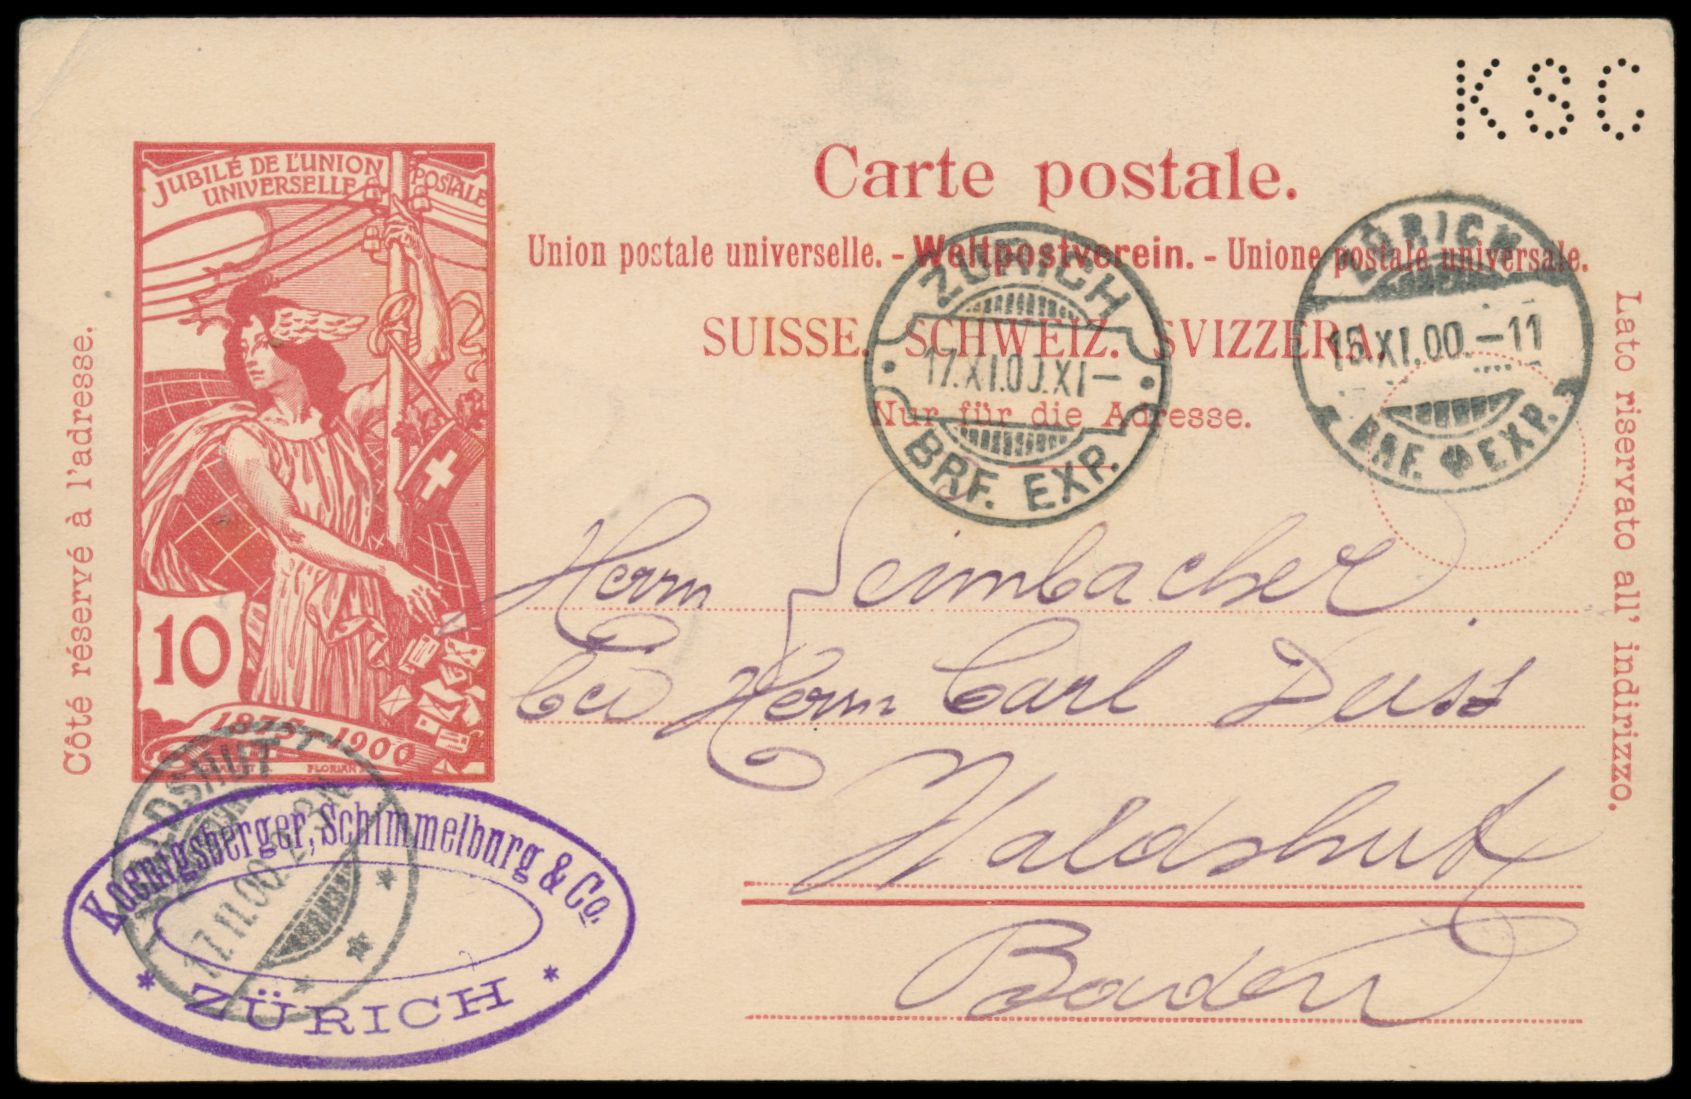 KSC
JUBILÉ DE L'UNION POSTALE
UNIVERSELLE
Carte postale.
Union postale universelle. - Weltpostverein. - Unione postale universale.
SUISSE. SCHWEIZ. SVIZZERA.
Nur für die Adresse.
Côté réservé à l'adresse.
Lato riservato all' indirizzo.
ZÜRICH
17.XI.00.XI-
BRF. EXP.
ZÜRICH
16.XI.00.-11
BRF. EXP.
10
1875 1900
FLORIAN
Herrn Leimbacher
bei Herrn Carl Deiss
Waldshut
Baden
WALDSHUT
17.11.00.
Koenigsberger, Schimmelburg & Co.
* ZÜRICH *